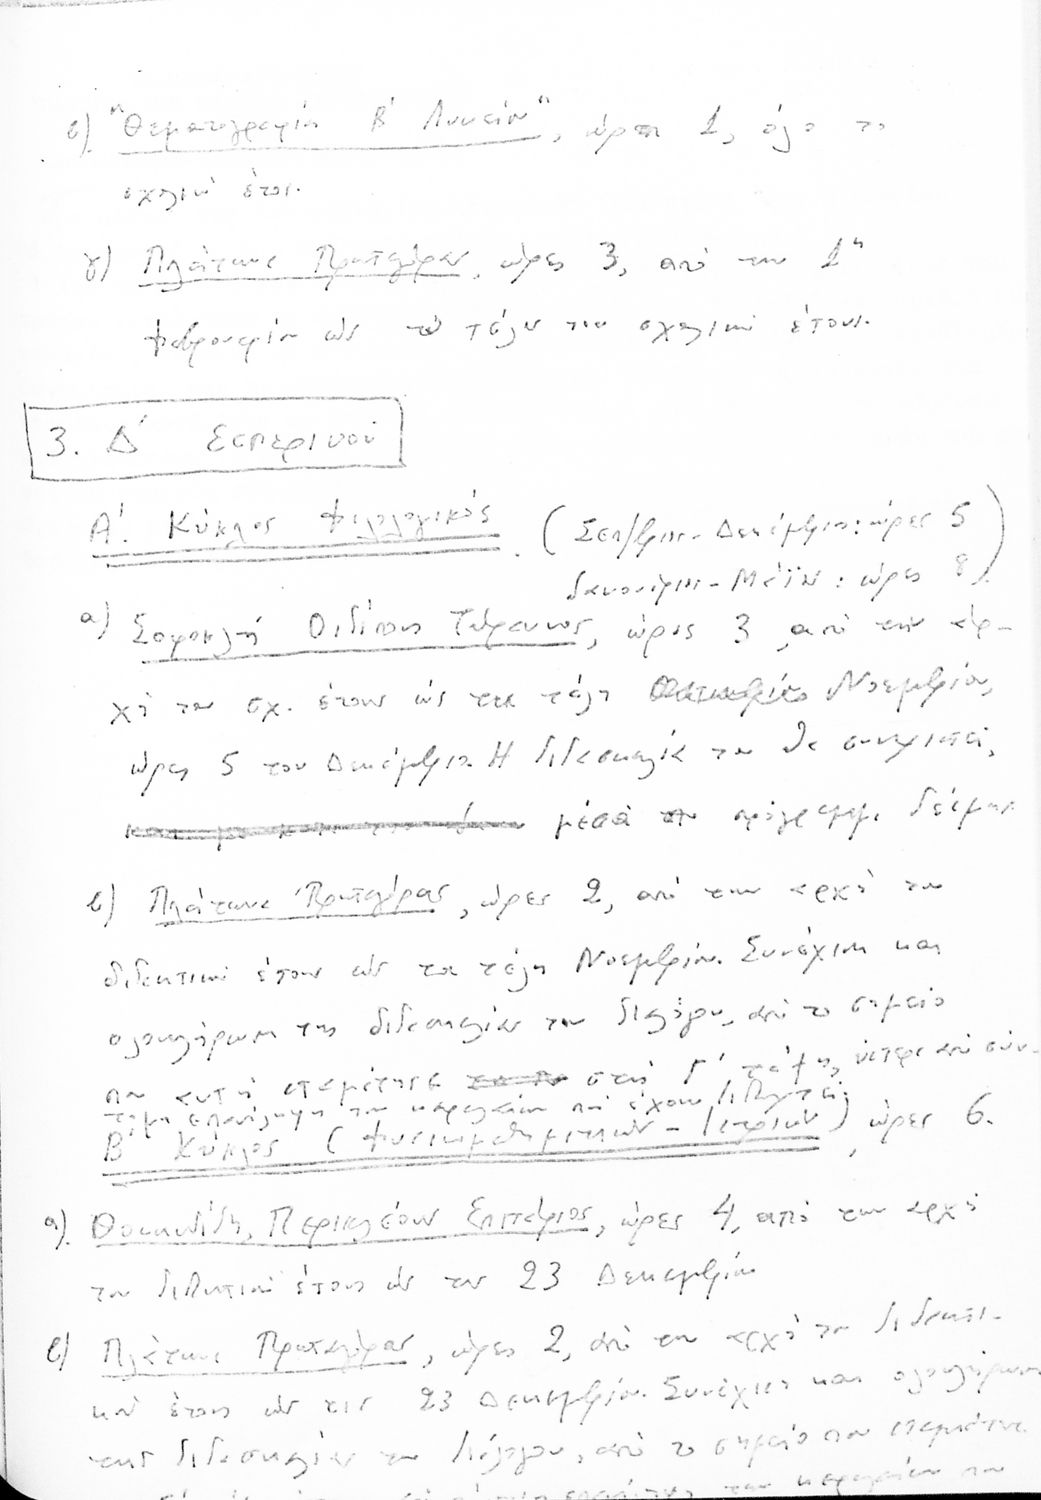 β) "Θεματογραφία Β' Λυκείου", ώρα 1, όλο το
σχολικό έτος.
γ) Πλάτωνος Πρωταγόρας, ώρες 3, από την 1η
Φεβρουαρίου ώς το τέλος του σχολικού έτους.
3. Δ' Εσπερινού
Α'. Κύκλος Φιλολογικός. (Σεπ/βριος - Δεκέμβριος: ώρες 5
Ιανουάριος - Μάϊος: ώρες 8)
α) Σοφοκλή Οιδίπους Τύραννος, ώρες 3, από την αρ-
χή του σχ. έτους ώς τα τέλη Νοεμβρίου,
ώρες 5 του Δεκέμβριο. Η διδασκαλία του θα συνεχιστεί,
μέσα στο πρόγραμμα δέσμης
β) Πλάτωνος Πρωταγόρας, ώρες 2, από την αρχή του
διδακτικού έτους ώς τα τέλη Νοεμβρίου. Συνέχιση και
ολοκλήρωση της διδασκαλίας του διαλόγου, από το σημείο
που αυτή σταμάτησε στη Γ' τάξη, ύστερα από σύν-
τομη επανάληψη των κεφαλαίων που έχουν διδαχτεί.
Β' Κύκλος (Φυσικομαθηματικών - Ιατρικών), ώρες 6.
α) Θουκυδίδη, Περικλέους Επιτάφιος, ώρες 4, από την αρχή
του διδακτικού έτους ώς την 23 Δεκεμβρίου
β) Πλάτωνος Πρωταγόρας, ώρες 2, από την αρχή του διδακτι-
κού έτους ώς τις 23 Δεκεμβρίου. Συνέχιση και ολοκλήρωση
της διδασκαλίας του διαλόγου, από το σημείο που σταμάτησε
των κεφαλαίων που